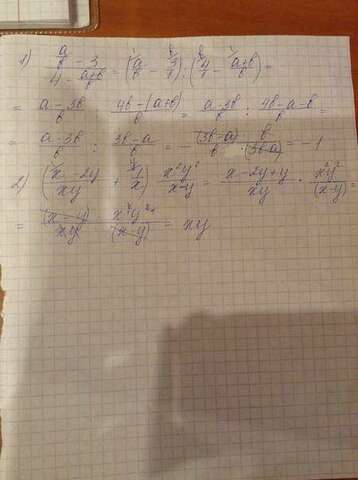 1) (a/b - 3)/(4 - (a+b)/b) = (a/b - 3/1) : (4/1 - (a+b)/b) =
= (a-3b)/b : (4b-(a+b))/b = (a-3b)/b : (4b-a-b)/b =
= (a-3b)/b : (3b-a)/b = - (3b-a)/b · b/(3b-a) = -1
2) ((x-2y)/xy + 1/x) · x²y²/(x-y) = (x-2y+y)/xy · x²y²/(x-y) =
= (x-y)/xy · x²y²/(x-y) = xy